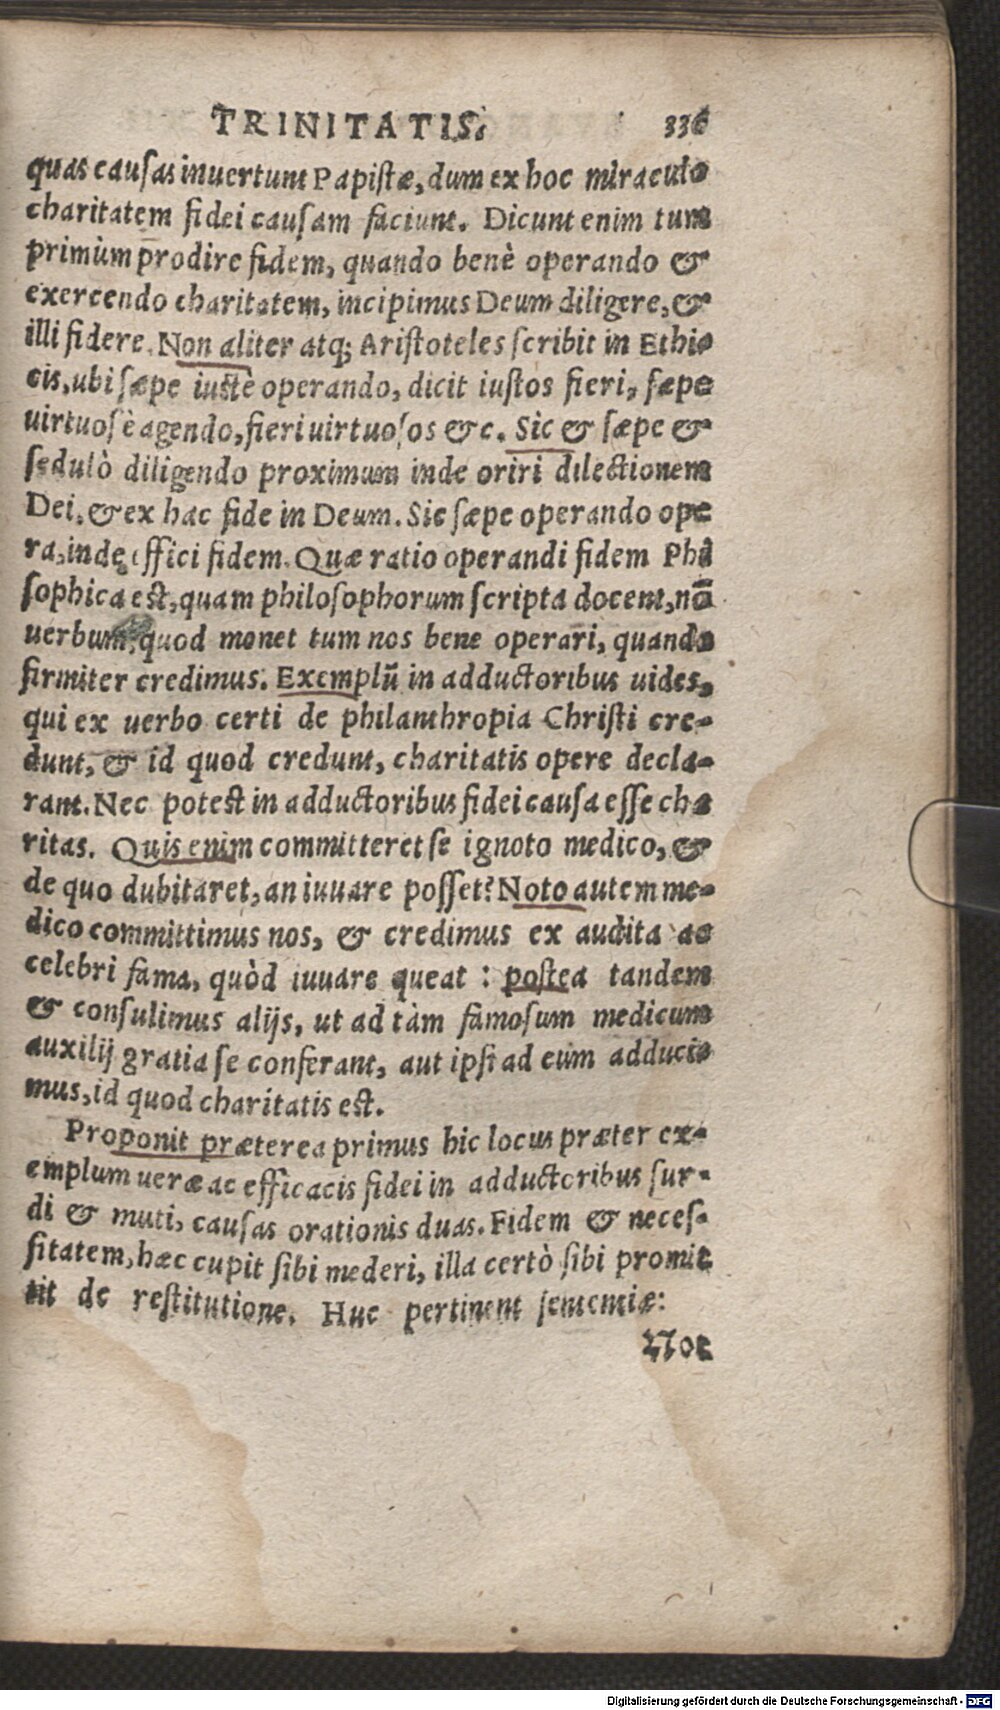 TRINITATIS. 336
quas causas inuertunt Papistæ, dum ex hoc miraculo
charitatem fidei causam faciunt. Dicunt enim tum
primùm prodire fidem, quando benè operando &
exercendo charitatem, incipimus Deum diligere, &
illi fidere. Non aliter atq; Aristoteles scribit in Ethi
cis, ubi sæpe iustè operando, dicit iustos fieri, sæpe
uirtuosè agendo, fieri uirtuosos &c. Sic & sæpe &
sedulò diligendo proximum inde oriri dilectionem
Dei, & ex hac fide in Deum. Sic sæpe operando ope
ra, inde effici fidem. Quæ ratio operandi fidem Philo
sophica est, quam philosophorum scripta docent, nō
uerbum, quod monet tum nos bene operari, quando
firmiter credimus. Exemplū in adductoribus uides,
qui ex uerbo certi de philanthropia Christi cre-
dunt, & id quod credunt, charitatis opere decla-
rant. Nec potest in adductoribus fidei causa esse cha
ritas. Quis enim committeret se ignoto medico, &
de quo dubitaret, an iuuare posset? Noto autem me-
dico committimus nos, & credimus ex audita ac
celebri fama, quòd iuuare queat : postea tandem
& consulimus alijs, ut ad tàm famosum medicum
auxilij gratia se conferant, aut ipsi ad eum adduci-
mus, id quod charitatis est.
Proponit præterea primus hic locus præter ex-
emplum ueræ ac efficacis fidei in adductoribus sur-
di & muti, causas orationis duas. Fidem & neces-
sitatem, hæc cupit sibi mederi, illa certò sibi promit
tit de restitutione. Huc pertinent sententiæ:
Not
Digitalisierung gefördert durch die Deutsche Forschungsgemeinschaft - DFG